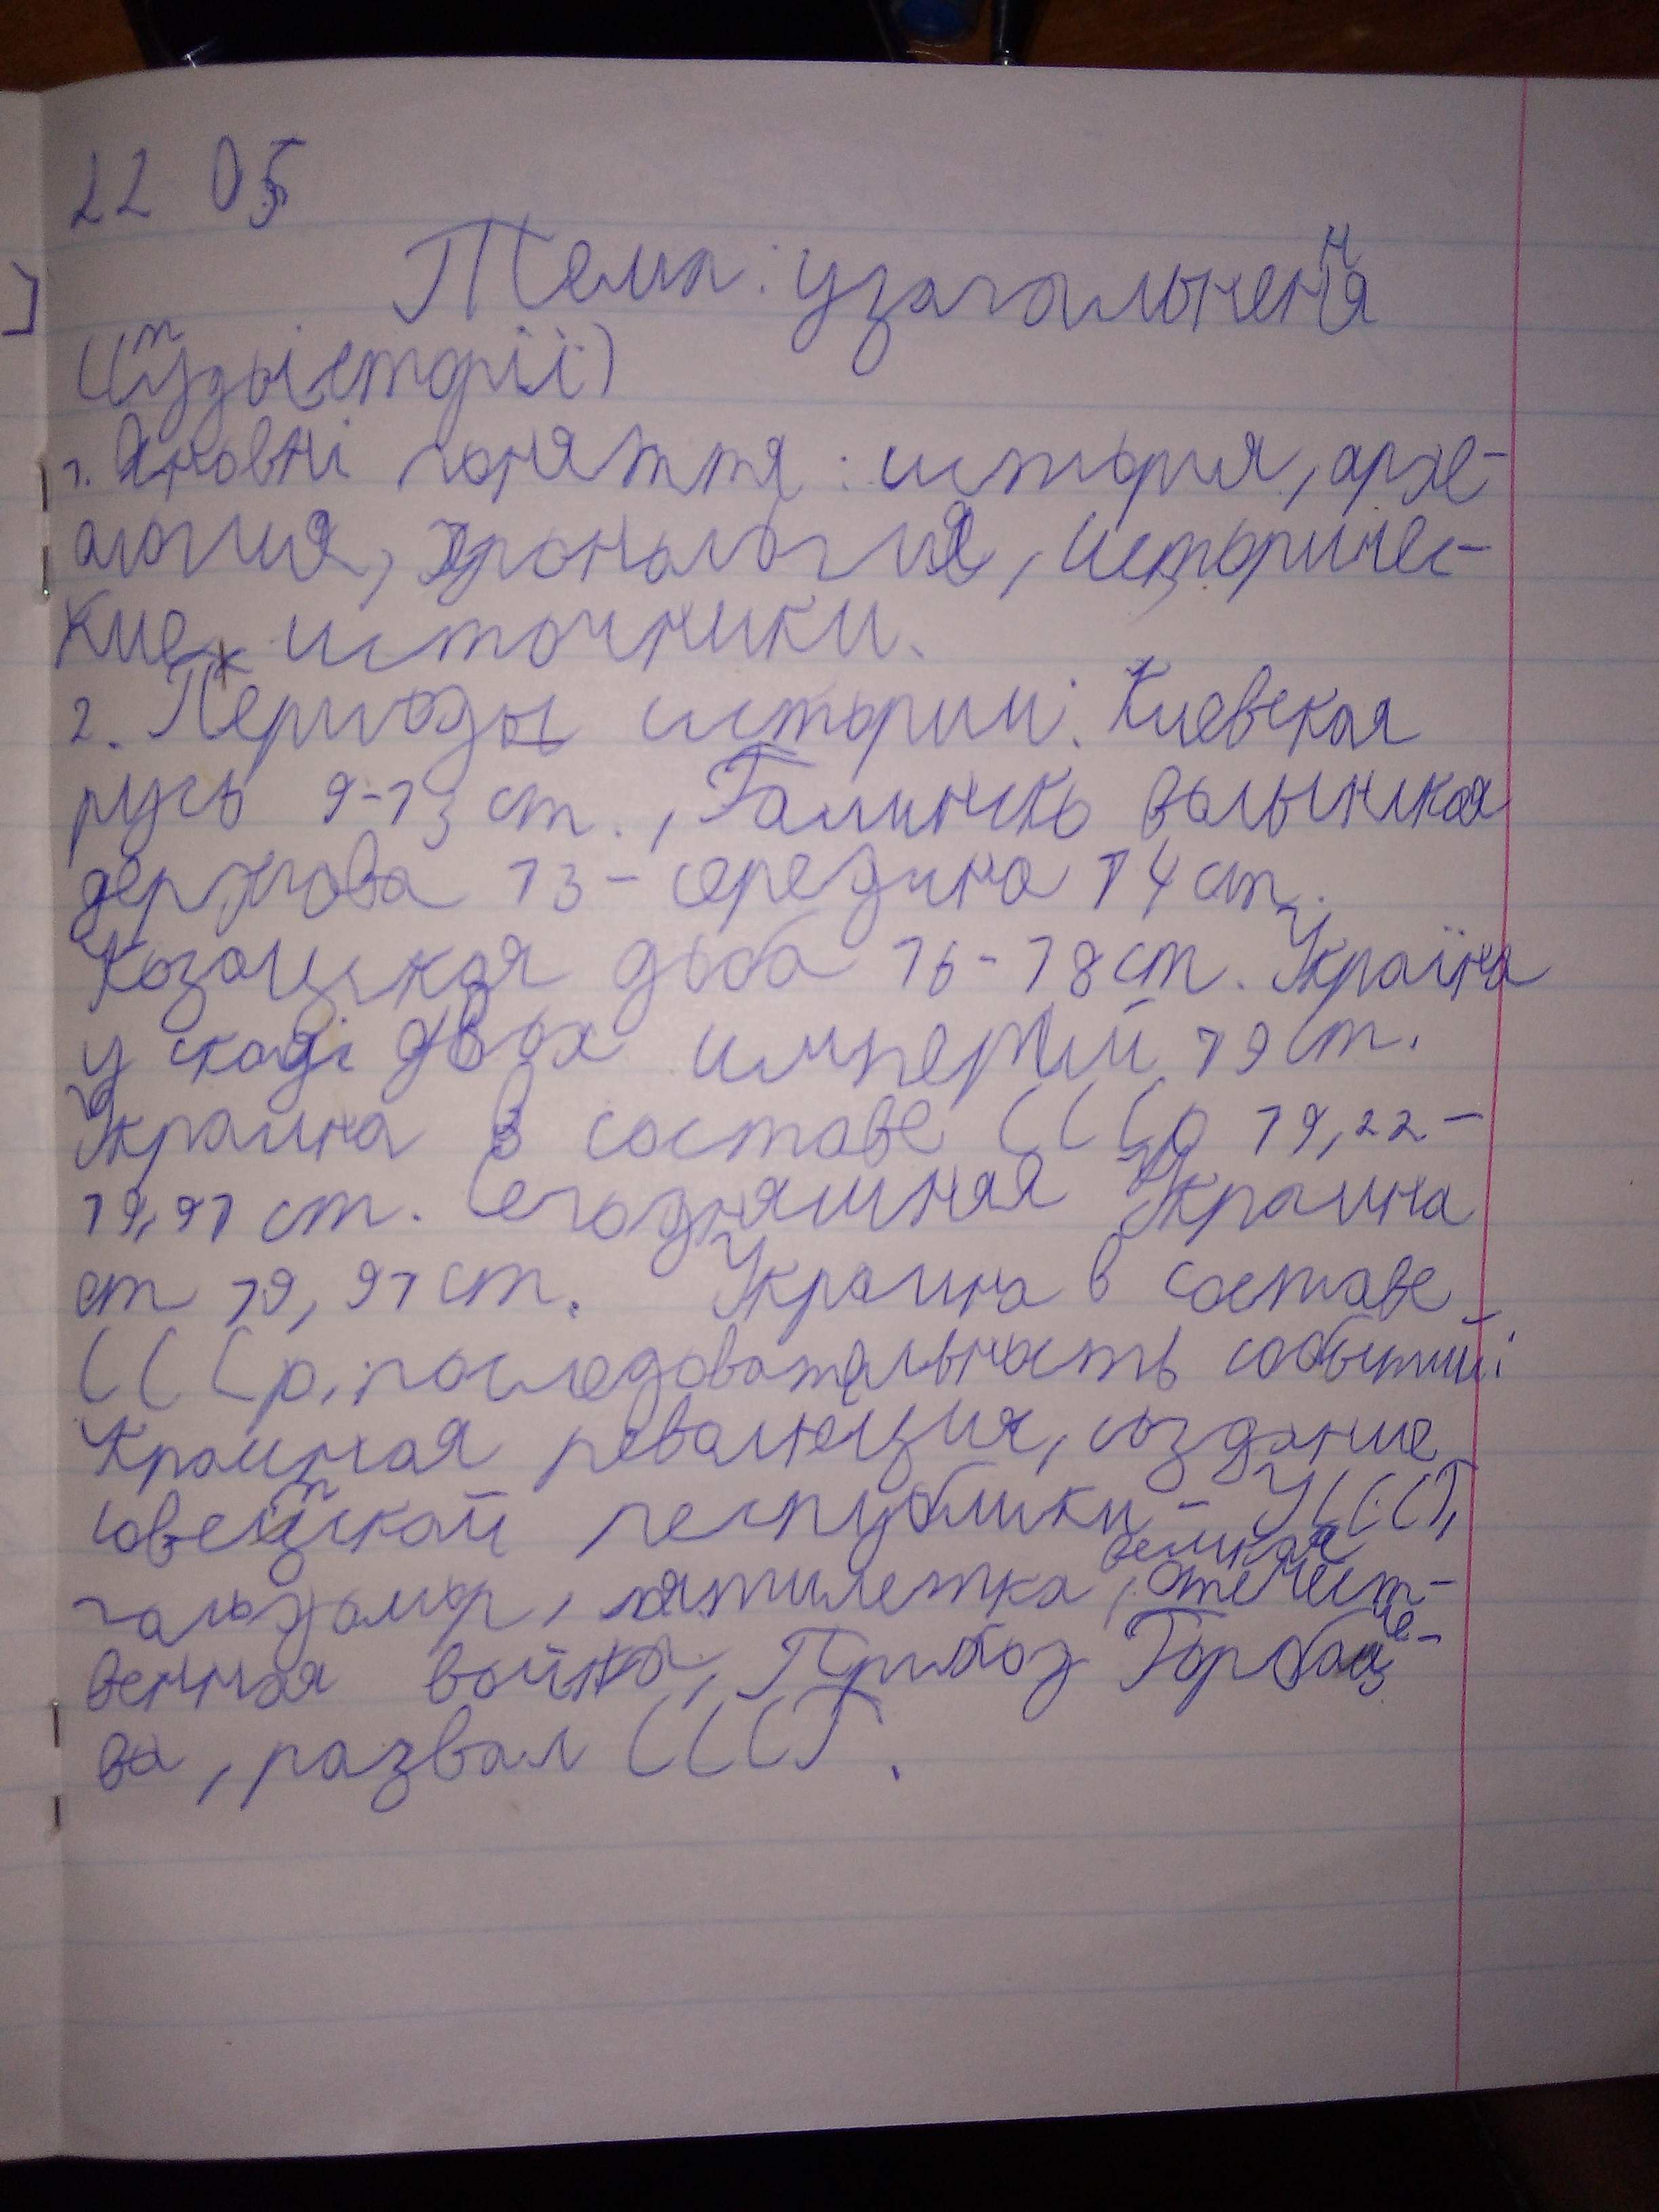 22 05
Тема: узагальнення
(Студыісторії)
1. Основні поняття: история, архе-
алогия, хронология, историчес-
кие источники.
2. Периоды истории: Киевская
русь 9-13 ст., Галинско волынская
держава 13 - середина 14 ст.
Козацкая доба 16-18 ст. Україна
у скаді двох империй 19 ст.
Украина в составе СССр 19,22-
19,91 ст. Сегодняшная Украина
от 19,91 ст. Украина в составе
СССр, последовательность событий:
революция, создание
советской республики - УССР,
гольдамор, пятилетка, великая отечест-
венная война, Горбаче-
ва, развал СССР.